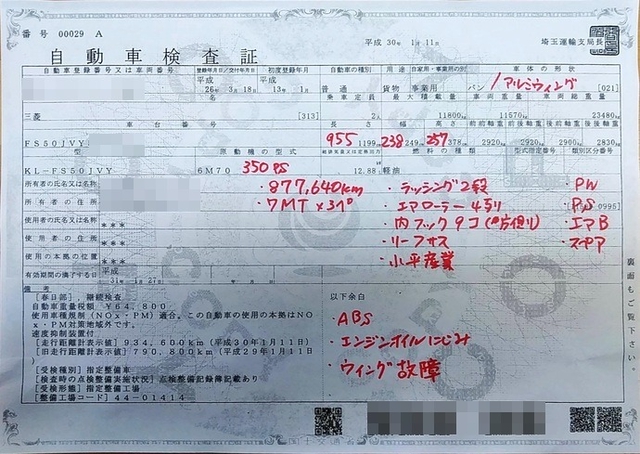 番 号 00029 A
平成 30年 1月11日
埼玉運輸支局長
自 動 車 検 査 証
自動車登録番号又は車両番号 登録年月日/交付年月日 初度登録年月 自動車の種別 用途 自家用・事業用の別 車体の形状
平成 平成
26年 3月18日 13年 1月 普通 貨物 事業用 バン /アルミウィング [021]
乗車定員 最大積載量 車両重量 車両総重量
三菱 [313] 2人 11800kg 11570kg 23480kg
車 台 番 号 長さ 幅 高さ 前前軸重 前後軸重 後前軸重 後後軸重
955 238 257
FS50JVY 1199cm 249cm 378cm 2920kg 2920kg 2900kg 2830kg
型 式 原動機の型式 燃料の種類 型式指定番号 類別区分番号
KL-FS50JVY 6M70 350PS 12.88 軽油
所有者の氏名又は名称
・877,640km
・ラッシング2段
・PW
所有者の住所
・7MT×3ペ
・エアローラー4列
・P/S
0995]
使用者の氏名又は名称 ***
・内フック9コ
・エアB
使用者の住所 ***
・リーフサス
・スペア
使用の本拠の位置 ***
・小平産業
有効期間の満了する日 平成
31年 1月27日
備 考
[春日部], 継続検査
自動車重量税額 ¥64,800
使用車種規制(NOx・PM)適合, この自動車の使用の本拠はNO
x・PM対策地域外です。
速度抑制装置付
[走行距離計表示値] 934,600km (平成30年1月11日)
[旧走行距離計表示値] 790,800km (平成29年1月11日)
[受検種別] 指定整備車
[検査時の点検整備実施状況] 点検整備記録簿記載あり
[受検形態] 指定整備工場
[整備工場コード] 44-01414
以下余白
・ABS
・エンジンオイルにじみ
・ウィング故障
裏面もご覧下さい。
国土交通省